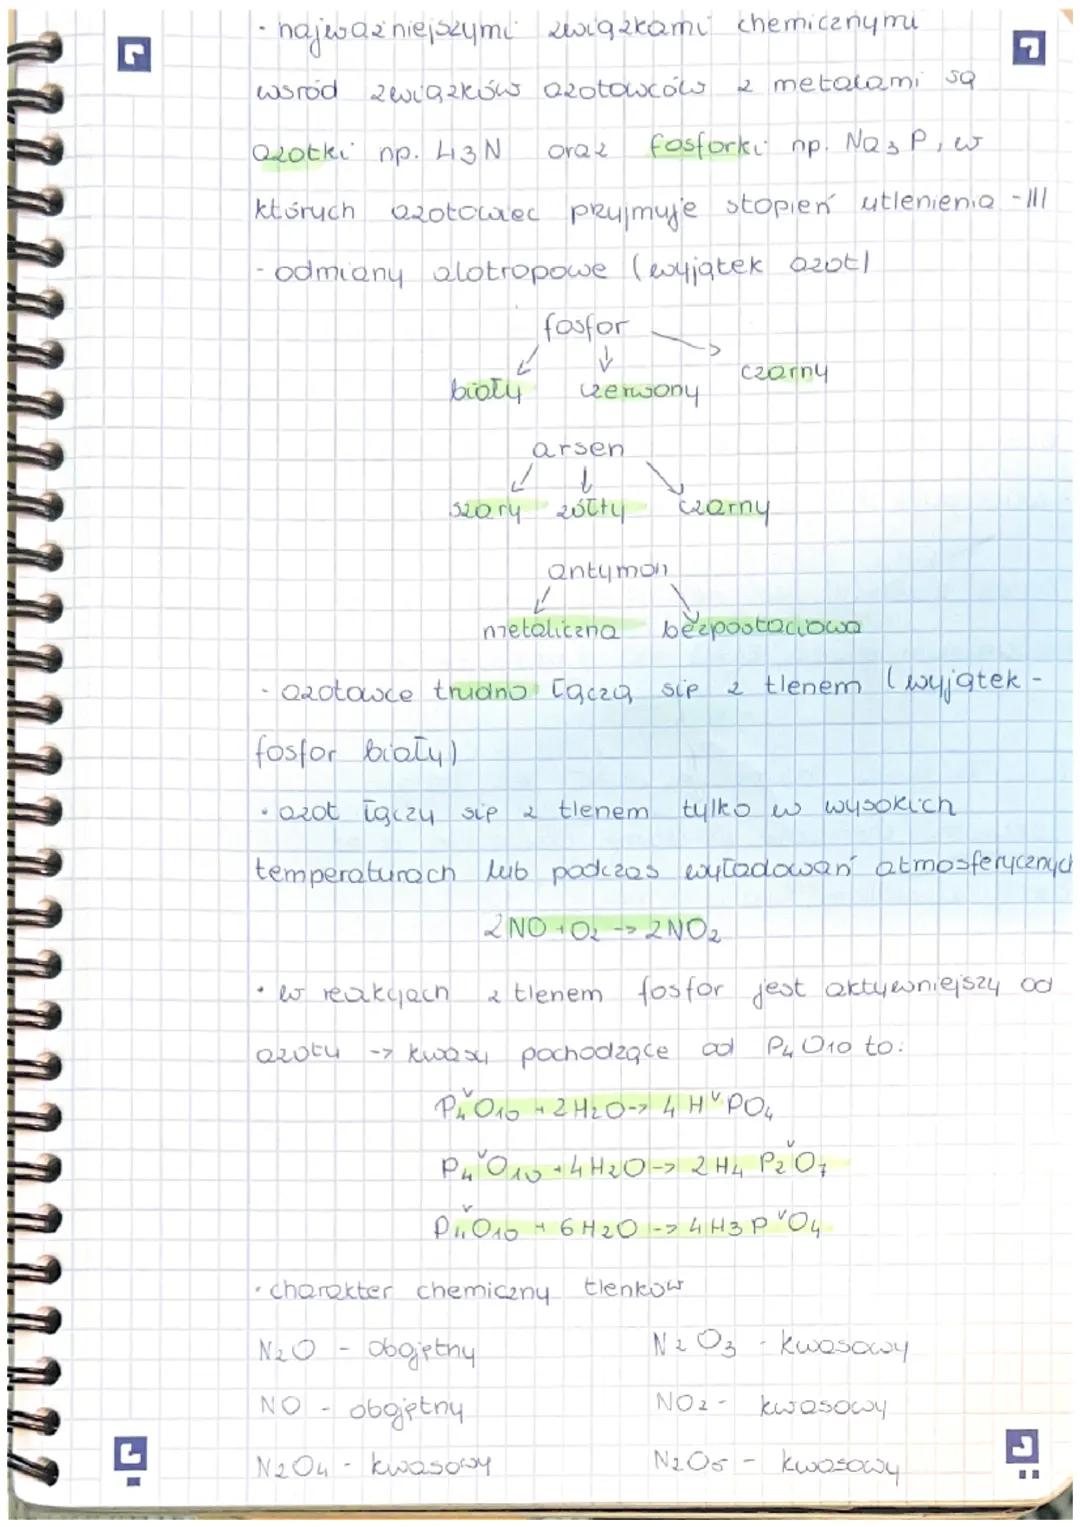 - najważniejszymi związkami chemicznymi
wsród związków azotowców z metalami są
azotki np. Li3N oraz fosforki np. Na3P, w
których azotowiec przyjmuje stopień utlenienia -III
- odmiany alotropowe (wyjątek azot)
fosfor
biały czerwony czarny
arsen
szary żółty czarny
antymon
metaliczna bezpostaciowa
- azotowce trudno łączą się z tlenem (wyjątek -
fosfor biały)
• azot łączy się z tlenem tylko w wysokich
temperaturach lub podczas wyładowań atmosferycznych
2NO + O2 -> 2NO2
• w reakcjach z tlenem fosfor jest aktywniejszy od
azotu -> kwasy pochodzące od P4O10 to:
P4^V O10 + 2H2O -> 4H^V PO4
P4^V O10 + 4H2O -> 2H4P2^V O7
P4^V O10 + 6H2O -> 4H3P^V O4
• charakter chemiczny tlenków
N2O - obojętny N2O3 - kwasowy
NO - obojętny NO2 - kwasowy
N2O4 - kwasowy N2O5 - kwasowy